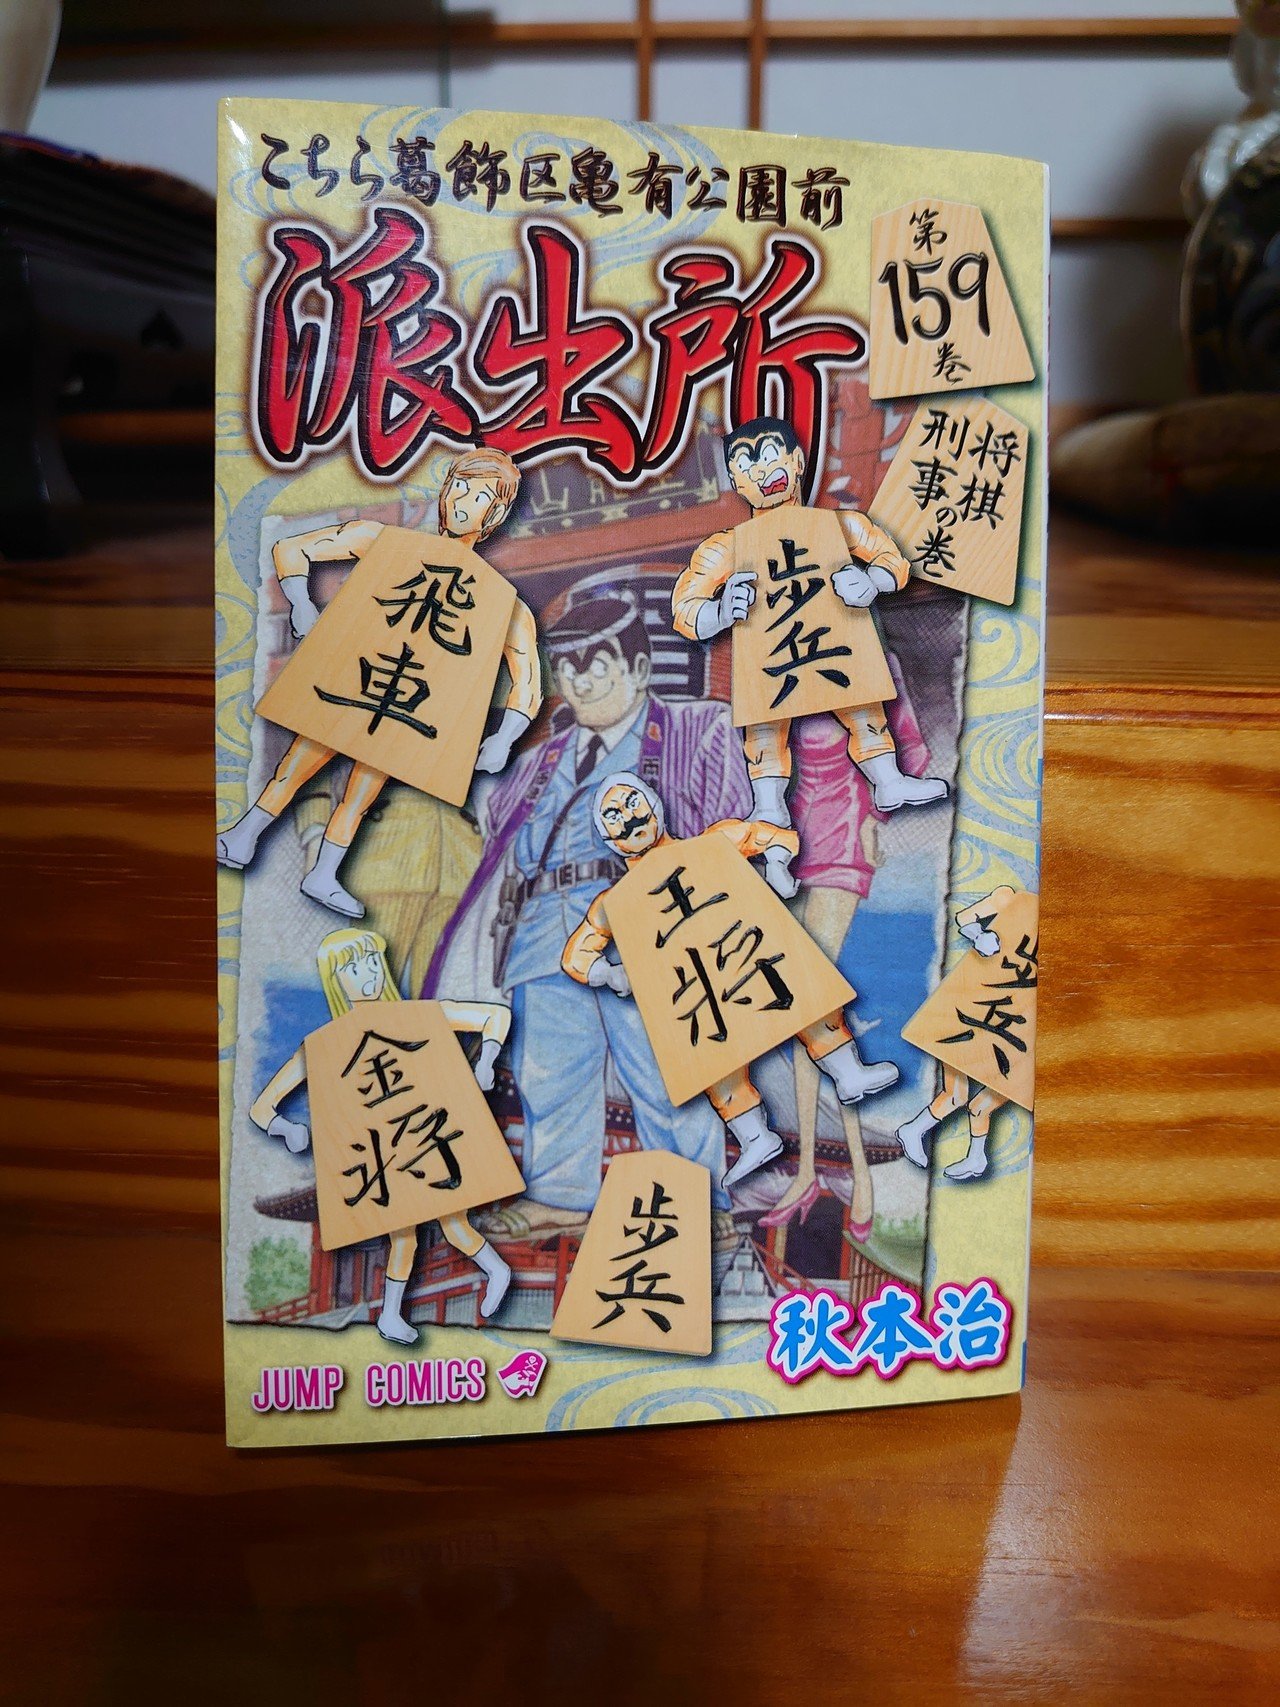 こちら葛飾区亀有公園前
派出所
第
159
巻
将棋
刑事の巻
飛車
歩兵
王将
歩兵
金将
歩兵
秋本治
JUMP COMICS